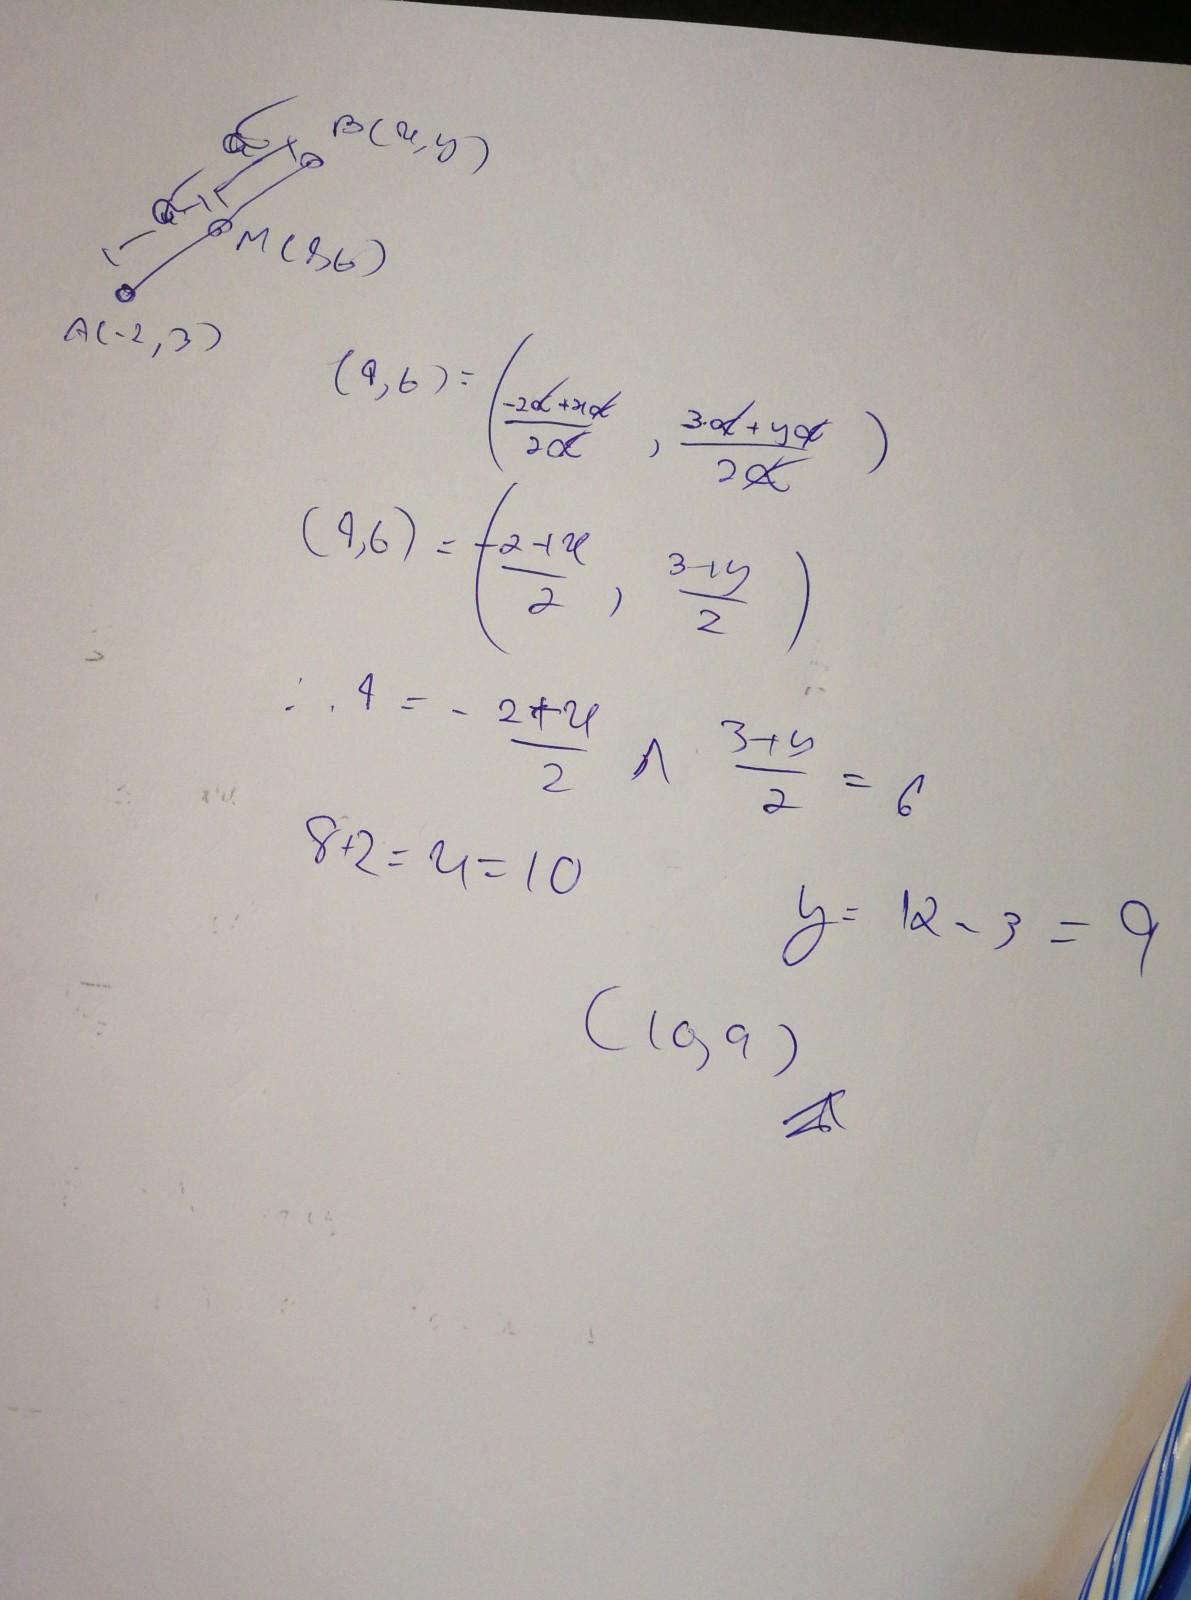 B(x, y)
α
α
M(4,6)
A(-2, 3)
(4,6) = (-2α+xα/2α , 3α+yα/2α)
(4,6) = (-2+x/2 , 3+y/2)
∴ 4 = -2+x/2 ∧ 3+y/2 = 6
8+2 = x = 10
y = 12 - 3 = 9
(10,9)